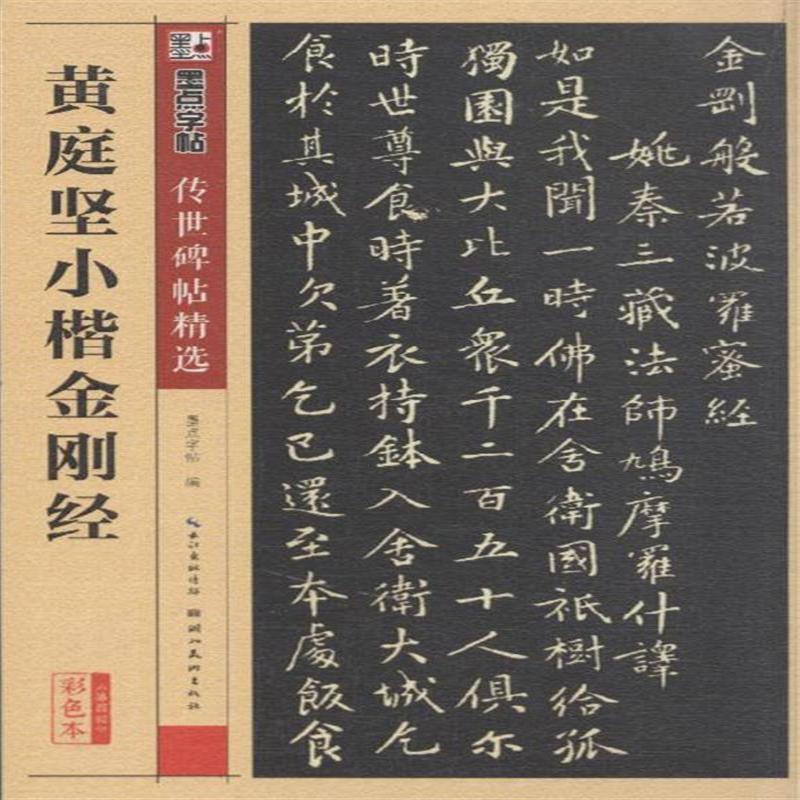 黄庭坚小楷金刚经
墨点
墨点字帖
传世碑帖精选
墨点字帖 编
长江出版传媒
湖北美术出版社
彩色本
金剛般若波羅蜜經
姚秦三藏法師鳩摩羅什譯
如是我聞一時佛在舍衛國祇樹給孤
獨園與大比丘眾千二百五十人俱尔
時世尊食時著衣持鉢入舍衛大城乞
食於其城中次第乞已還至本處飯食